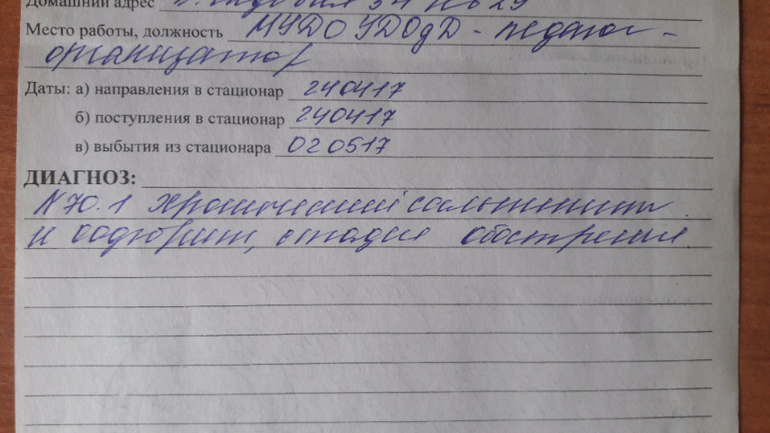 Домашний адрес
Место работы, должность МУДО УДОДД - педагог -
организатор
Даты: а) направления в стационар 240417
б) поступления в стационар 240417
в) выбытия из стационара 020517
ДИАГНОЗ:
N70.1 Хронический сальпингит
и оофорит, стадия обострения.